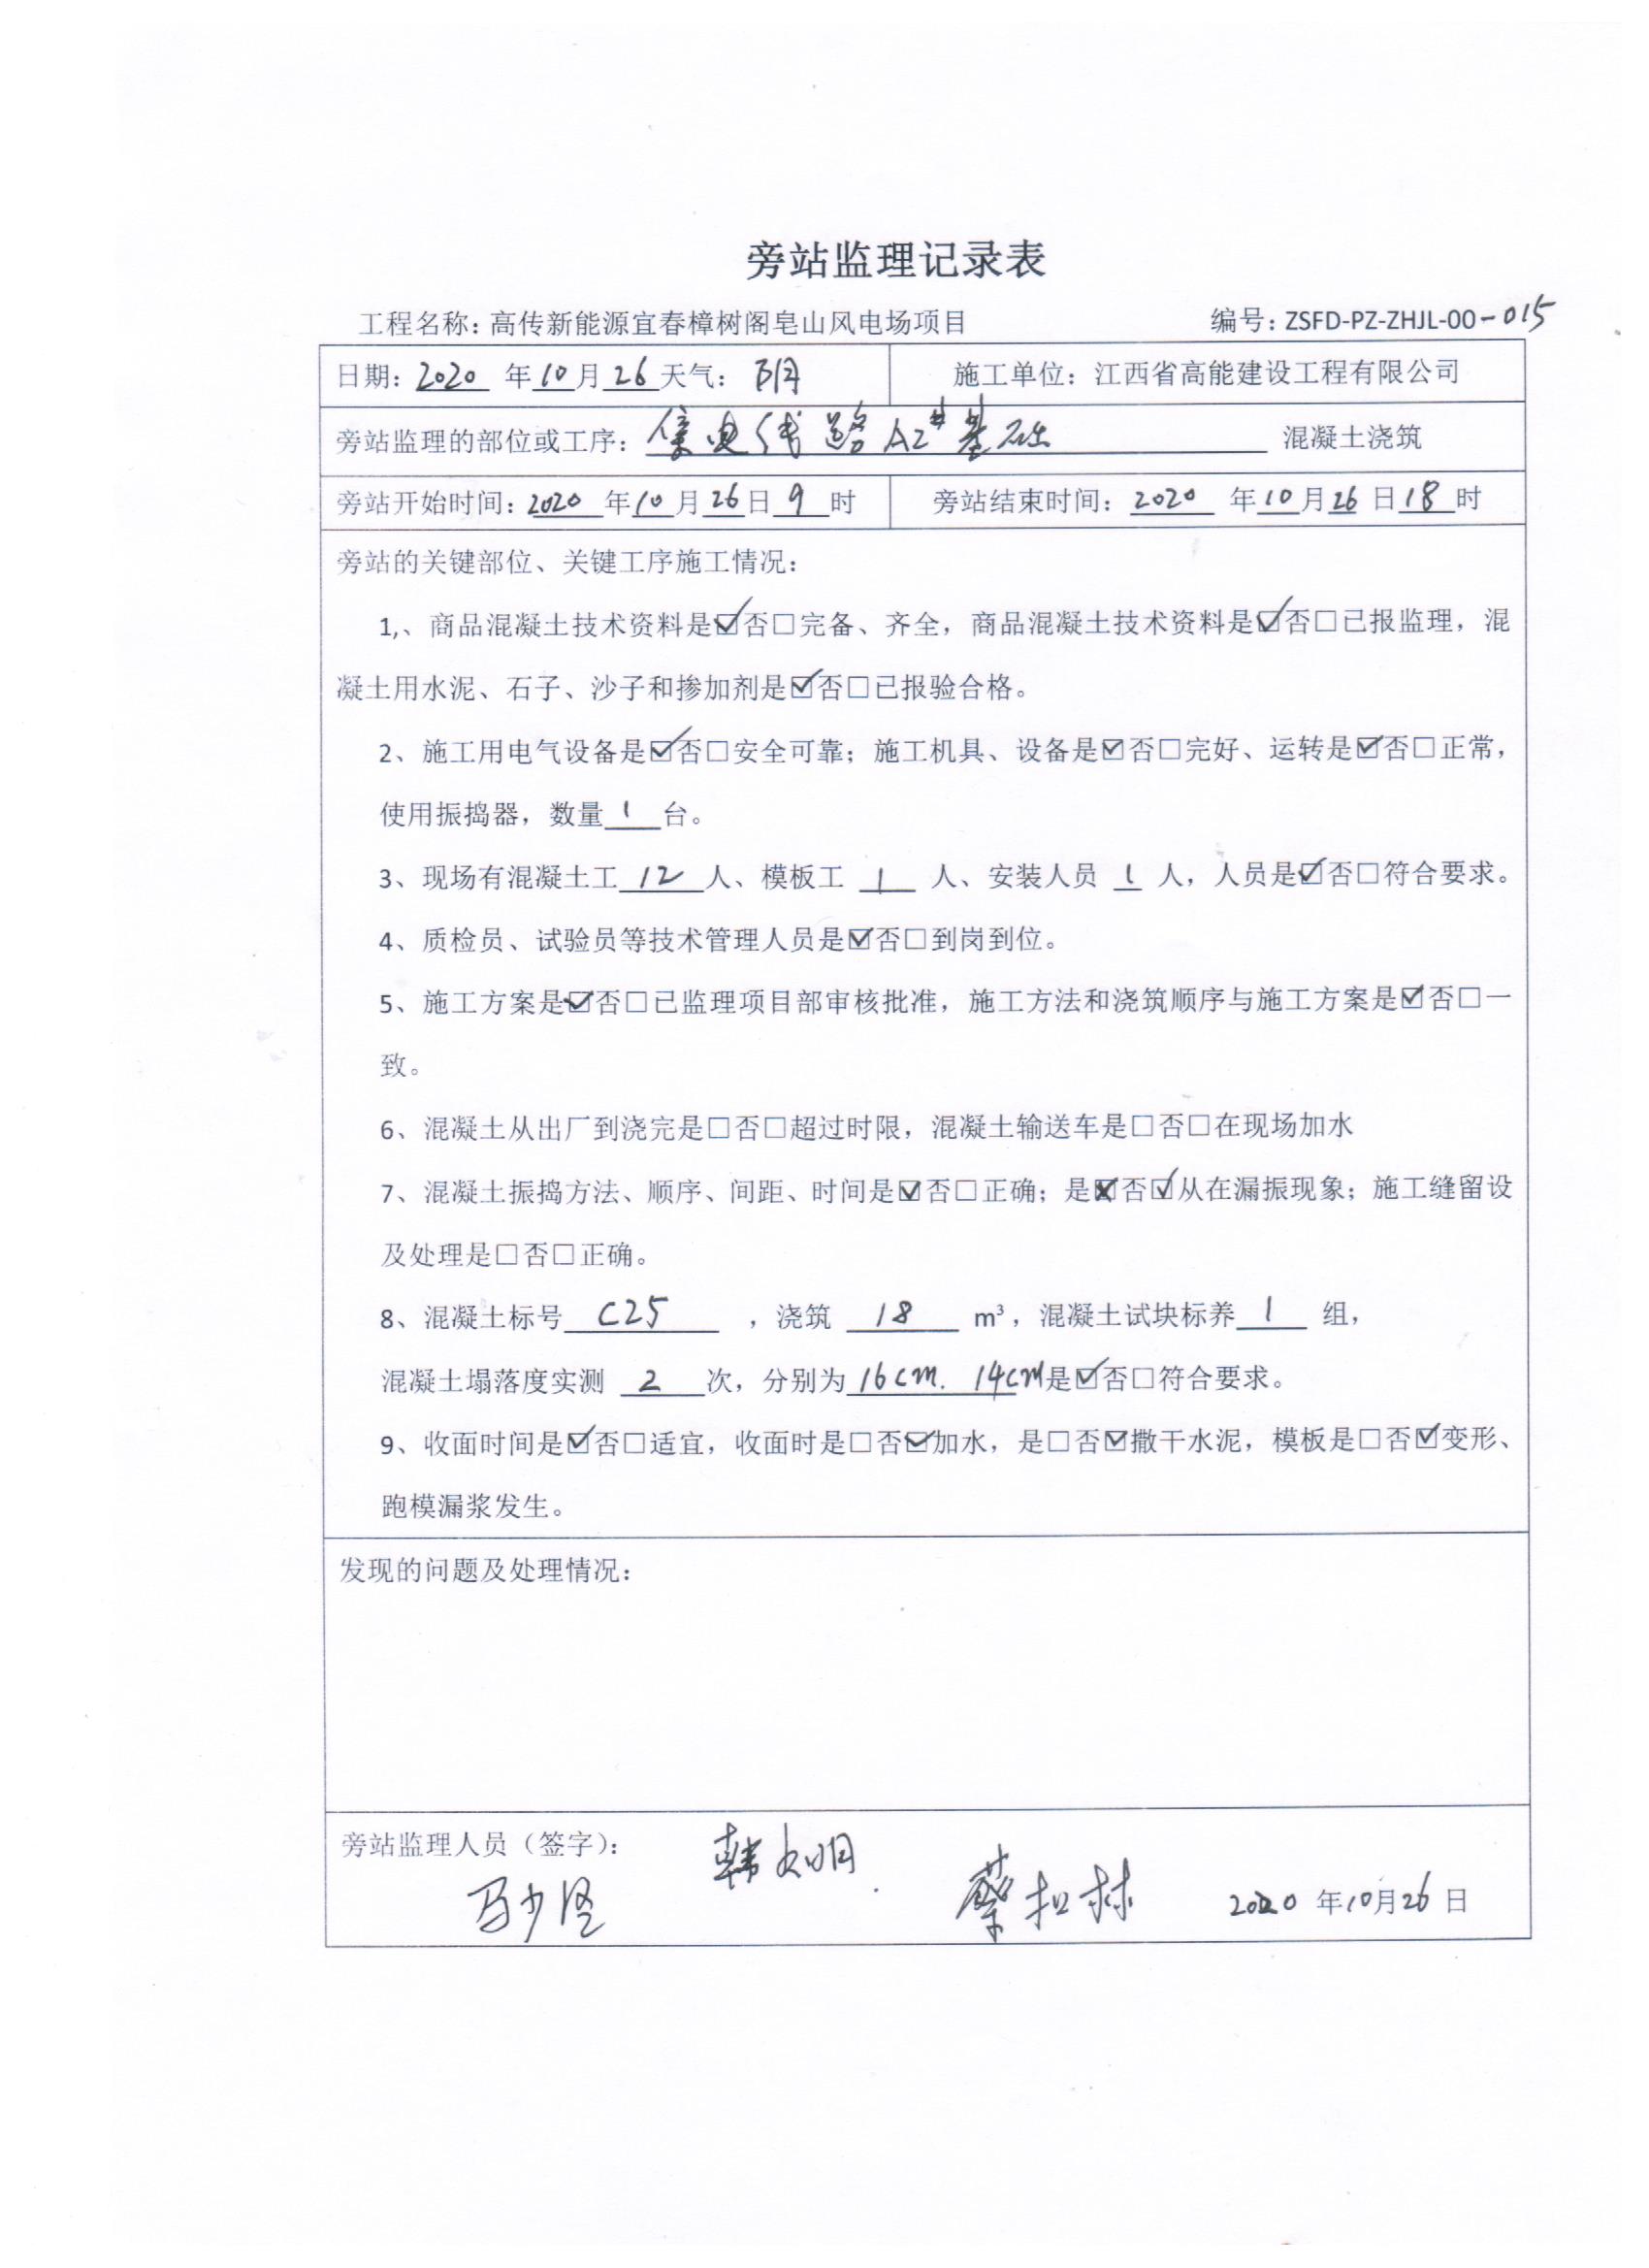 旁站监理记录表
工程名称：高传新能源宜春樟树阁皂山风电场项目 编号：ZSFD-PZ-ZHJL-00-015
日期：2020 年10月26天气：阴 施工单位：江西省高能建设工程有限公司
旁站监理的部位或工序：集电线路A2#基础 混凝土浇筑
旁站开始时间：2020年10月26日9时 旁站结束时间：2020 年10月26日18时
旁站的关键部位、关键工序施工情况：
1,、商品混凝土技术资料是☑否□完备、齐全，商品混凝土技术资料是☑否□已报监理，混
凝土用水泥、石子、沙子和掺加剂是☑否□已报验合格。
2、施工用电气设备是☑否□安全可靠；施工机具、设备是☑否□完好、运转是☑否□正常，
使用振捣器，数量1台。
3、现场有混凝土工12人、模板工 1 人、安装人员 1 人，人员是☑否□符合要求。
4、质检员、试验员等技术管理人员是☑否□到岗到位。
5、施工方案是☑否□已监理项目部审核批准，施工方法和浇筑顺序与施工方案是☑否□一
致。
6、混凝土从出厂到浇完是□否□超过时限，混凝土输送车是□否□在现场加水
7、混凝土振捣方法、顺序、间距、时间是☑否□正确；是☒否☑从在漏振现象；施工缝留设
及处理是□否□正确。
8、混凝土标号 C25 ，浇筑 18 m³，混凝土试块标养 1 组，
混凝土塌落度实测 2 次，分别为16cm. 14cm是☑否□符合要求。
9、收面时间是☑否□适宜，收面时是□否☑加水，是□否☑撒干水泥，模板是□否☑变形、
跑模漏浆发生。
发现的问题及处理情况：
旁站监理人员（签字）：
2020 年10月26日